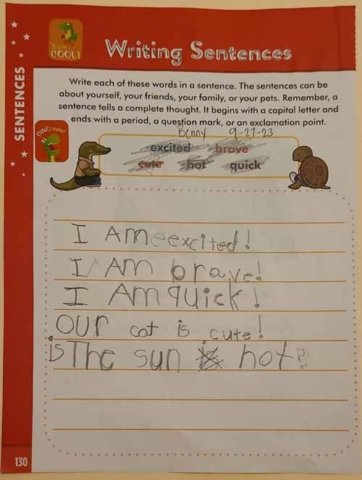 YOU'RE
COOL!
Writing Sentences
SENTENCES
Write each of these words in a sentence. The sentences can be
about yourself, your friends, your family, or your pets. Remember, a
sentence tells a complete thought. It begins with a capital letter and
ends with a period, a question mark, or an exclamation point.
Benny 9-27-23
excited brave
cute hot quick
I Am excited!
I Am brave!
I Am quick!
our cat is cute!
is The sun hot?
130